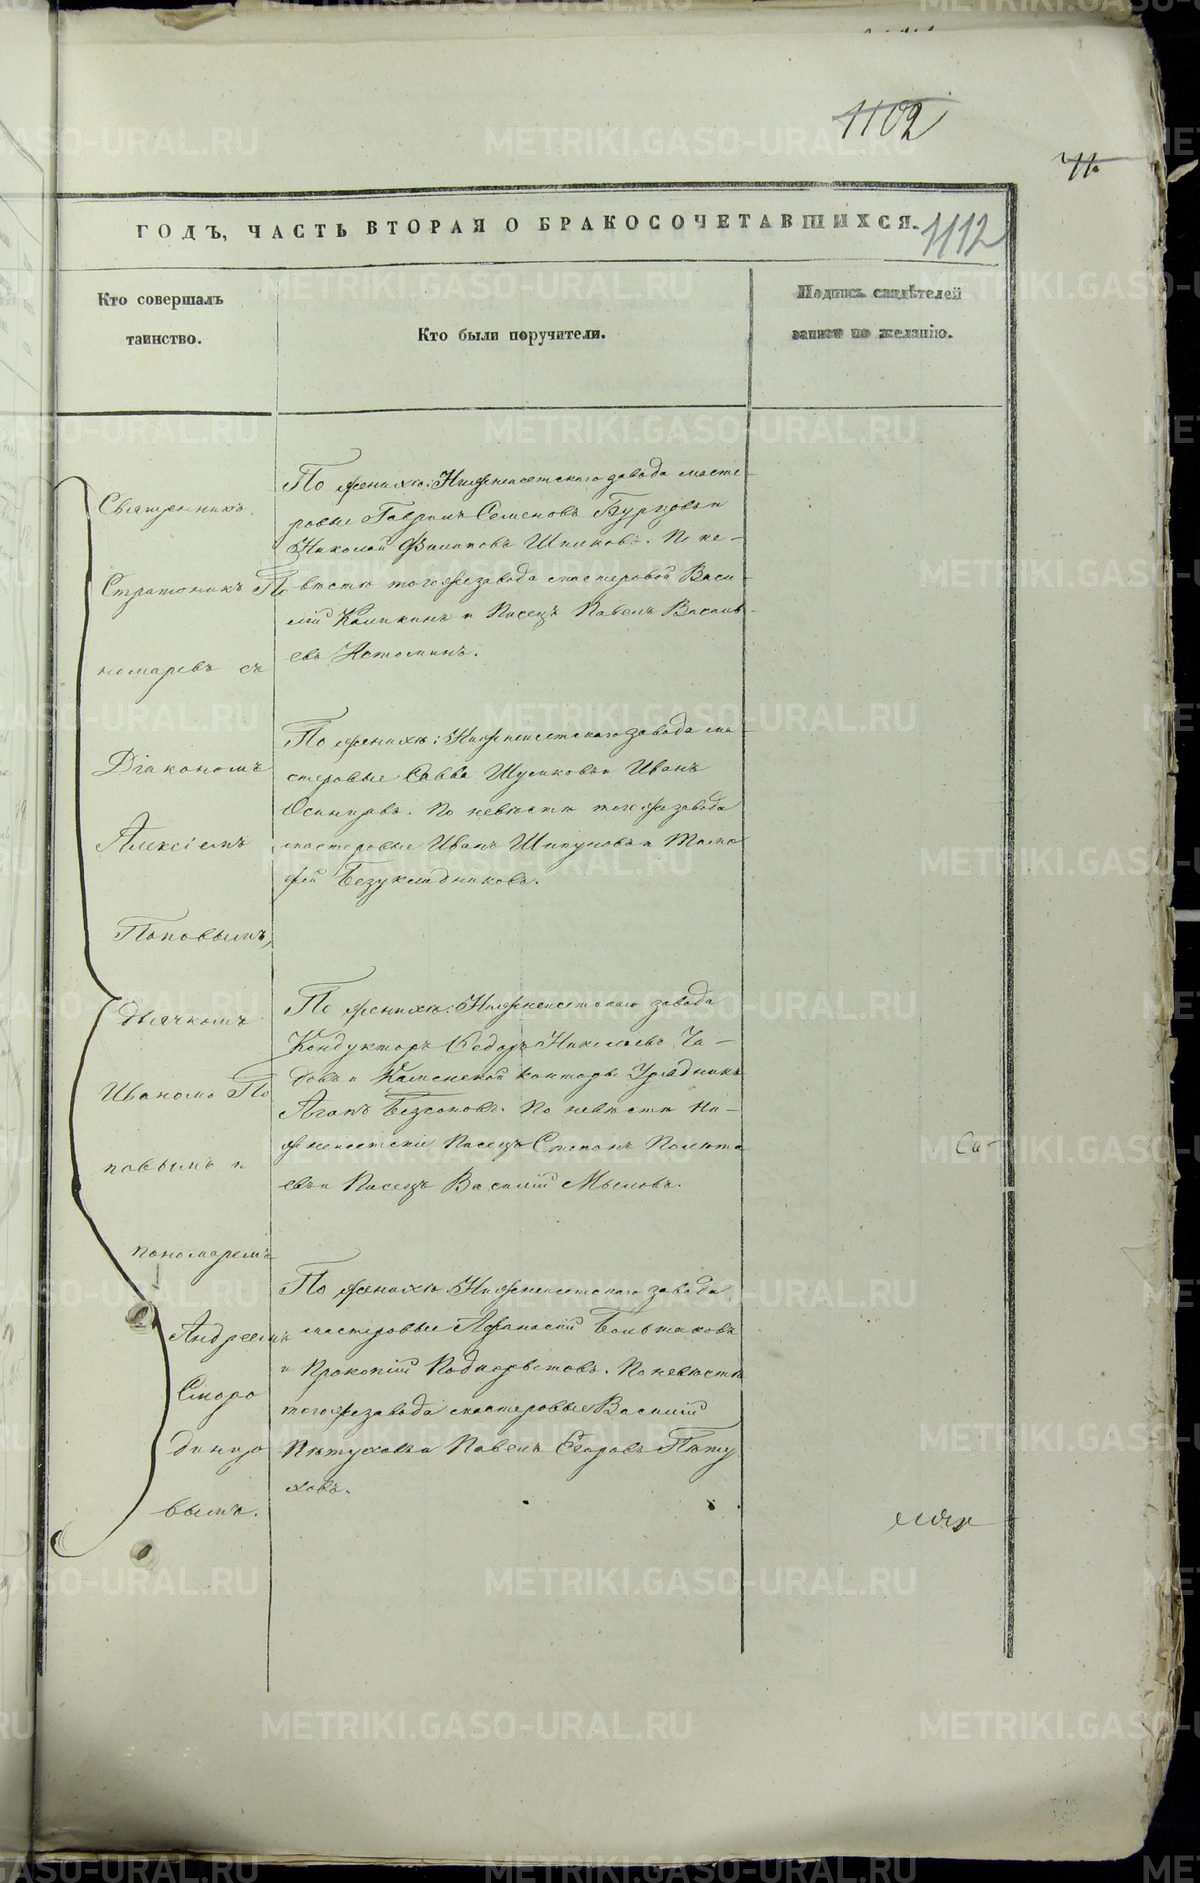 1102
11.
ГОДЪ, ЧАСТЬ ВТОРАЯ О БРАКОСОЧЕТАВШИХСЯ.
1112
Кто совершалъ
таинство.
Кто были поручители.
Подпись свидѣтелей
записи по желанію.
Священникъ
Стратоникъ По
номаревъ съ
Діакономъ
Алексіемъ
Поповымъ,
Дьячкомъ
Иваномъ По
повымъ и
пономаремъ
Андреемъ
Сморо
динцо
вымъ.
По женихѣ: Нижнеисетскаго завода масте-
ровые Гаврилъ Семеновъ Бурцовъ и
Николай Филиповъ Шпиковъ. По не-
вѣстѣ тогоже завода мастеровой Васи-
лій Каликинъ и Писецъ Павелъ Василь-
евъ Истоминъ.
По женихѣ: Нижнеисетскаго завода ма-
стеровые Савва Шумковъ и Иванъ
Осинцовъ. По невѣстѣ тогоже завода
мастеровые Иванъ Шипуновъ и Тимо
фей Безукладниковъ.
По женихѣ: Нижнеисетскаго завода
Кондукторъ Федоръ Николаевъ Ча-
совъ и Каменской конторы Урядникъ
Агапъ Безсоновъ. По невѣстѣ Ни-
жнеисетскіе Писецъ Степанъ Полента
евъ и Писецъ Василій Мыловъ.
По женихѣ Нижнеисетскаго завода
мастеровые Афанасій Большаковъ
и Прокопій Подкорытовъ. По невѣстѣ
тогоже завода мастеровые Василій
Пѣтуховъ и Павелъ Егоровъ Пѣту
ховъ.
METRIKI.GASO-URAL.RU